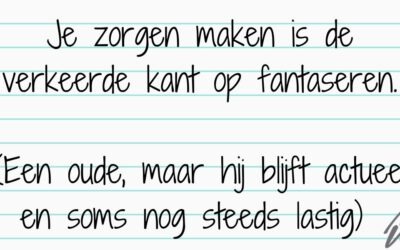 Je zorgen maken is de
verkeerde kant op fantaseren.
(Een oude, maar hij blijft actuee
en soms nog steeds lastig)